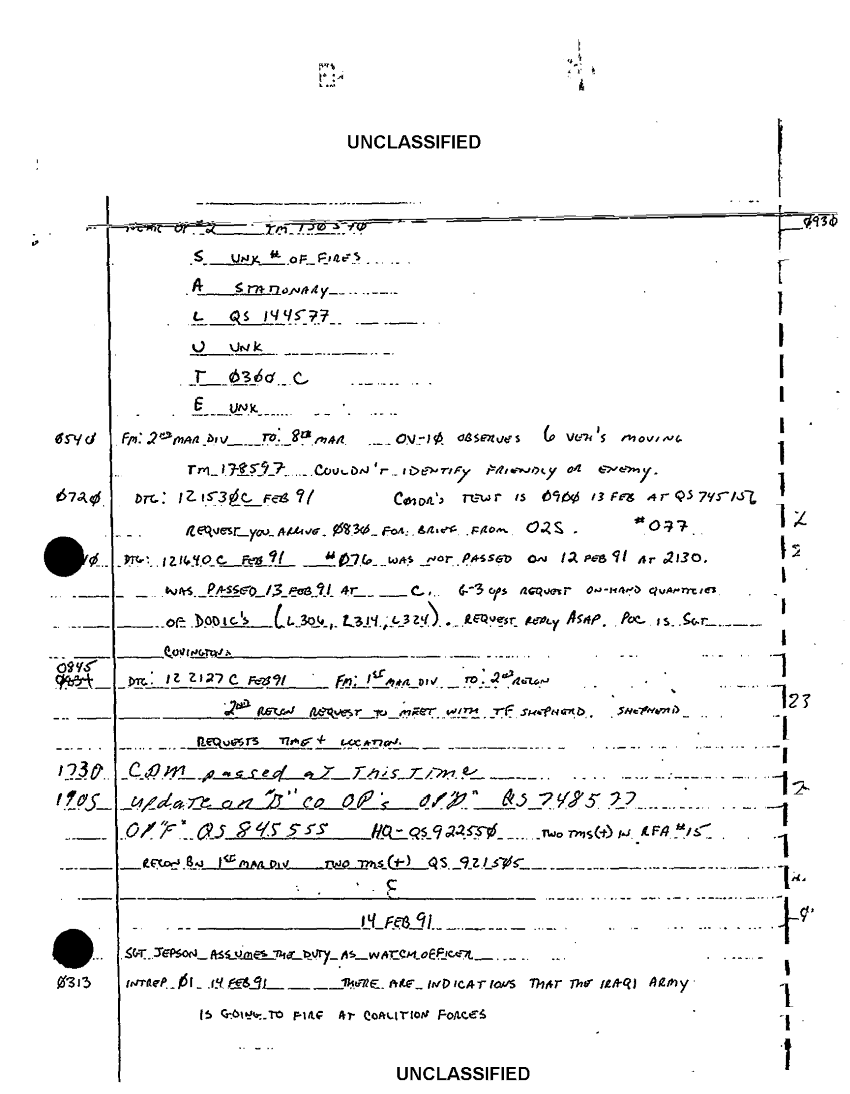 UNCLASSIFIED
OP #2 0930
S UNK # OF FIRES
A STATIONARY
L QS 144577
U UNK
T 0300 C
E UNK
0540 FM: 2nd MAR DIV TO: 8th MAR OV-10 OBSERVES 6 VEH'S MOVING
TM 178597 COULDN'T IDENTIFY FRIENDLY OR ENEMY.
0720 DTG: 121530C FEB 91 COMDR'S TEWT IS 0900 13 FEB AT QS 745152
REQUEST YOU ARRIVE 0830 FOR BRIEF FROM 02S. #077
DTG: 121640C FEB 91 #076 WAS NOT PASSED ON 12 FEB 91 AT 2130.
WAS PASSED 13 FEB 91 AT C. G-3 OPS REQUEST ON-HAND QUANTITIES
OF DODIC'S (L306, L314, L324). REQUEST REPLY ASAP. POC IS SGT
COVINGTON.
0845
0834 DTG: 12 2127 C FEB 91 FM: 1st MAR DIV TO: 2nd RECON
23
2nd RECON REQUEST TO MEET WITH TF SHEPHERD. SHEPHERD
REQUESTS TIME + LOCATION.
1730 CDM passed at This Time
1905 update on "B" co OP's OP"D" QS 748577
OP"F" QS 845555 HQ-QS 922550 TWO TMS(+) IN RFA #15
RECON BN 1st MAR DIV TWO TMS(+) QS 921505
14 FEB 91
SGT JEPSON ASSUMES THE DUTY AS WATCH OFFICER
0313 INTREP 01 14 FEB 91 THERE ARE INDICATIONS THAT THE IRAQI ARMY
IS GOING TO FIRE AT COALITION FORCES
UNCLASSIFIED